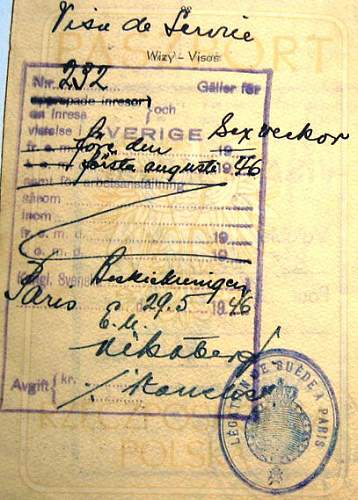 Visa de Service
PASZPORT
Wizy - Visas
Nr. 232 Gäller för
upprepade inresor
en inresa och
vistelse i SVERIGE Sex veckor
fr. o. m. före den 19
t. o. m. första augusti 1946
samt för arbetsanställning
såsom
inom
fr. o. m. d. 19
t. o. m. d. 19
Kungl. Svenska Beskickningen
Paris 29.5 1946
E.U.
Avgift kr.
LÉGATION DE SUÈDE À PARIS
RZECZPOSPOLITA
POLSKA